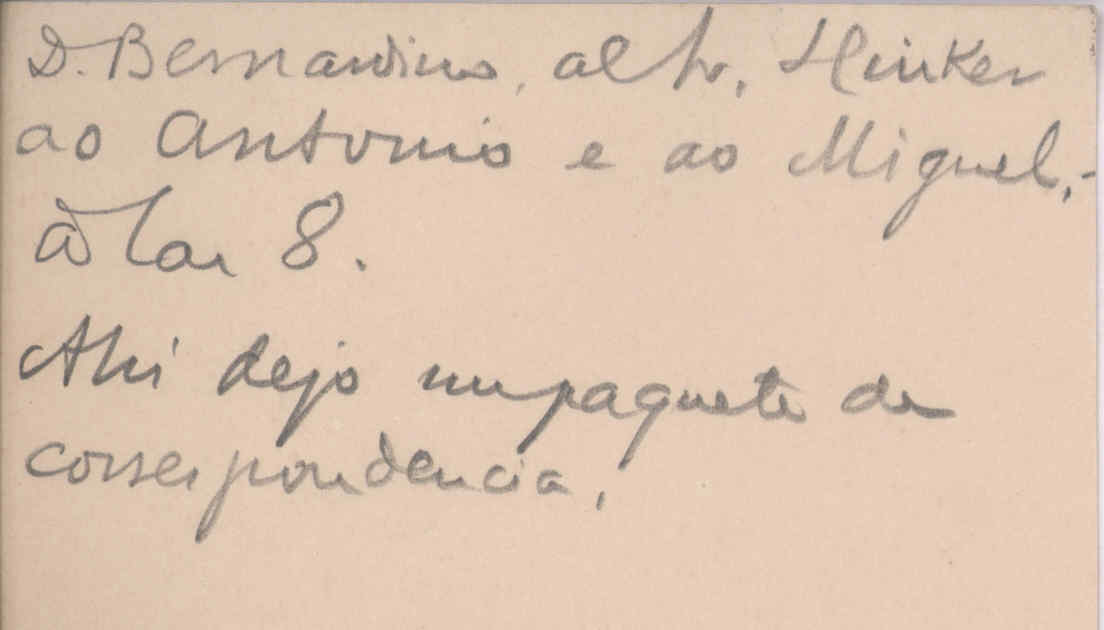 D. Bernardino, al Sr. Hinker
ao Antonio e ao Miguel,-
a las 8.
Ahi dejo un paquete de
correspondencia,